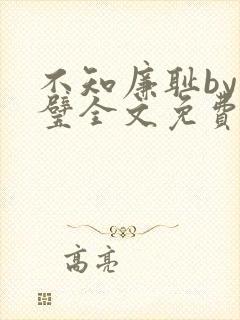 不知廉耻by
璧全文免费
高亮